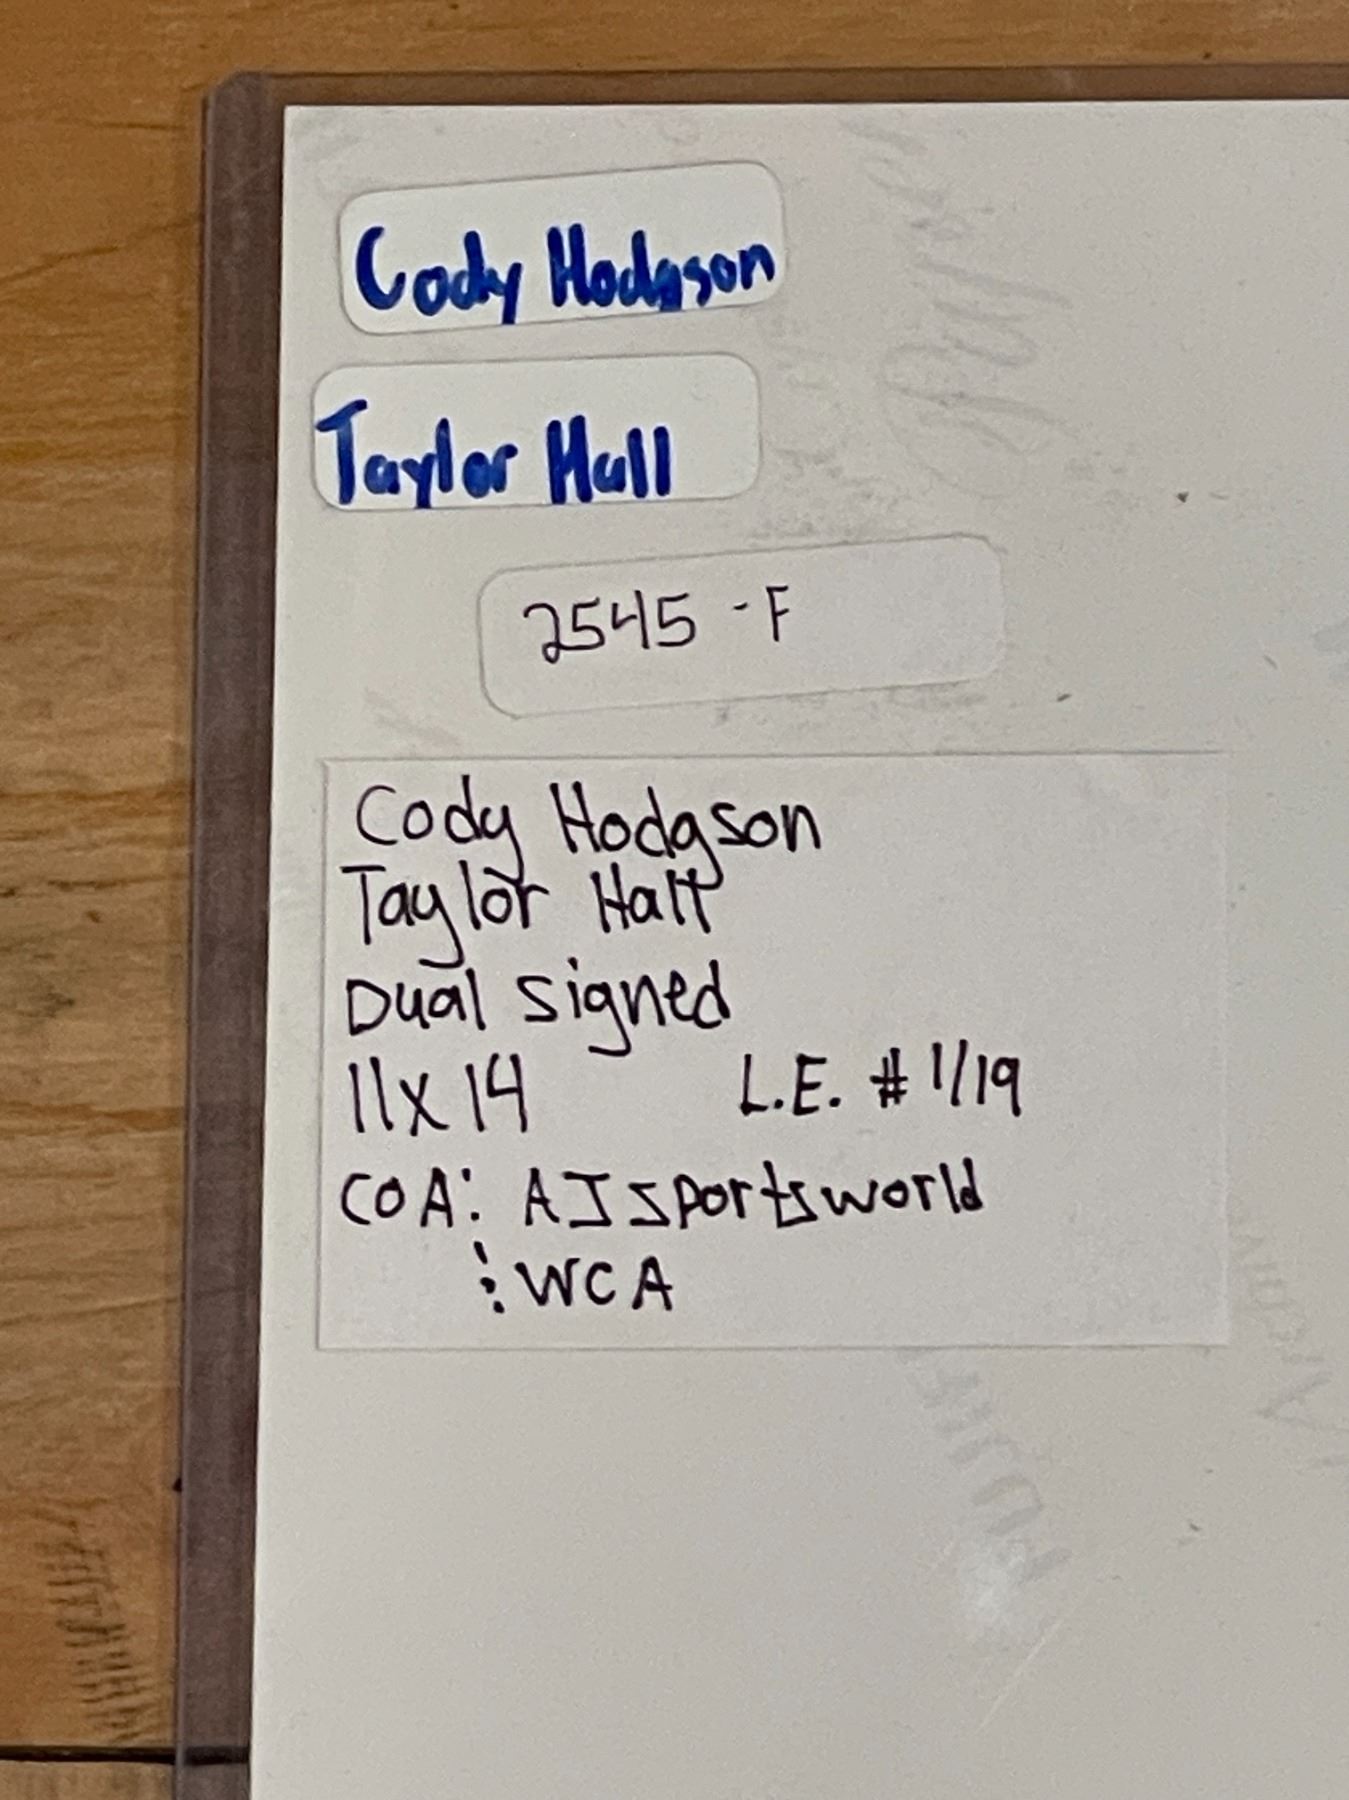 Cody Hodgson
Taylor Hall
2545 - F
Cody Hodgson
Taylor Hall
Dual signed
11x14 L.E. # 1/19
COA: AJ Sportsworld
: WCA